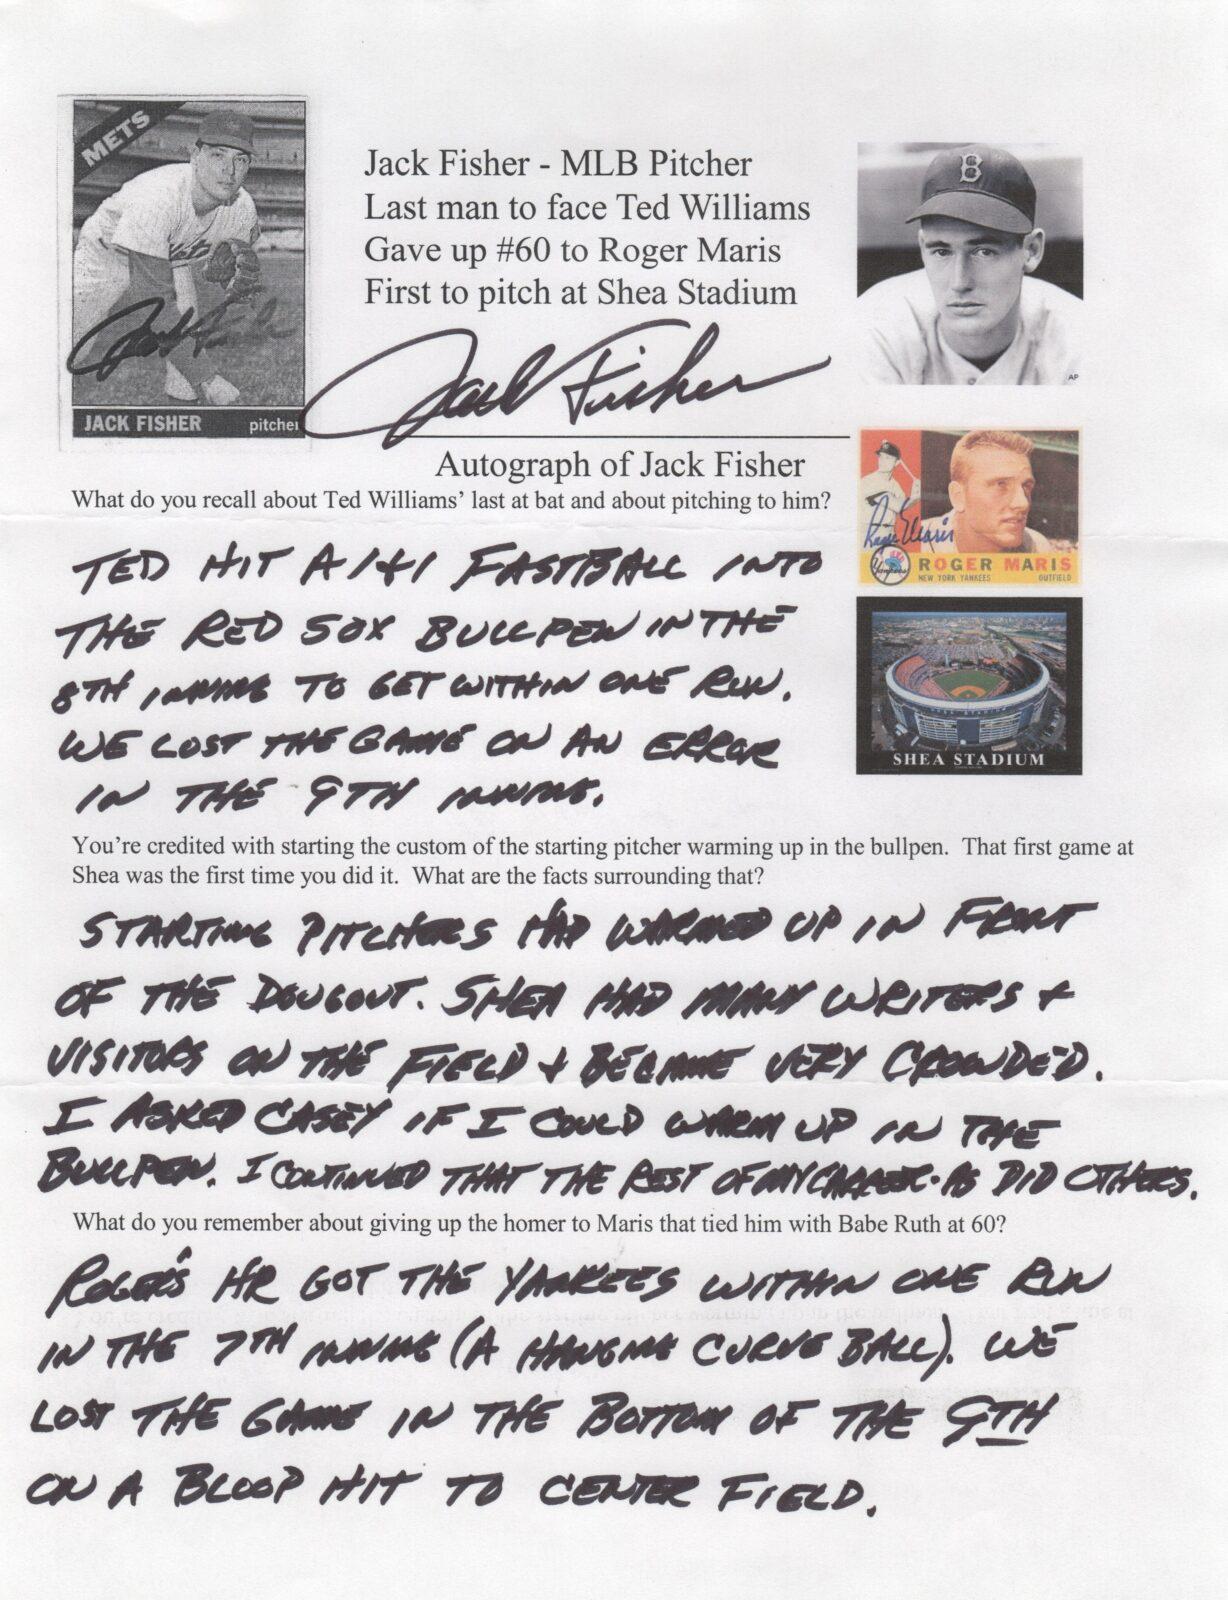 METS
Jack Fisher
JACK FISHER pitcher
Jack Fisher - MLB Pitcher
Last man to face Ted Williams
Gave up #60 to Roger Maris
First to pitch at Shea Stadium
Jack Fisher
Autograph of Jack Fisher
B
AP
Roger Maris
Yankees
ROGER MARIS
NEW YORK YANKEES OUTFIELD
SHEA STADIUM
What do you recall about Ted Williams' last at bat and about pitching to him?
TED HIT A 1+1 FASTBALL INTO
THE RED SOX BULLPEN IN THE
8TH INNING TO GET WITHIN ONE RUN.
WE LOST THE GAME ON AN ERROR
IN THE 9TH INNING.
You're credited with starting the custom of the starting pitcher warming up in the bullpen. That first game at
Shea was the first time you did it. What are the facts surrounding that?
STARTING PITCHERS HAD WARMED UP IN FRONT
OF THE DOUGOUT. SHEA HAD MANY WRITERS +
VISITORS ON THE FIELD + BECAME VERY CROWDED.
I ASKED CASEY IF I COULD WARM UP IN THE
BULLPEN. I CONTINUED THAT THE REST OF MY CAREER. AS DID OTHERS.
What do you remember about giving up the homer to Maris that tied him with Babe Ruth at 60?
ROGER'S HR GOT THE YANKEES WITHIN ONE RUN
IN THE 7TH INNING (A HANGING CURVE BALL). WE
LOST THE GAME IN THE BOTTOM OF THE 9TH
ON A BLOOP HIT TO CENTER FIELD.